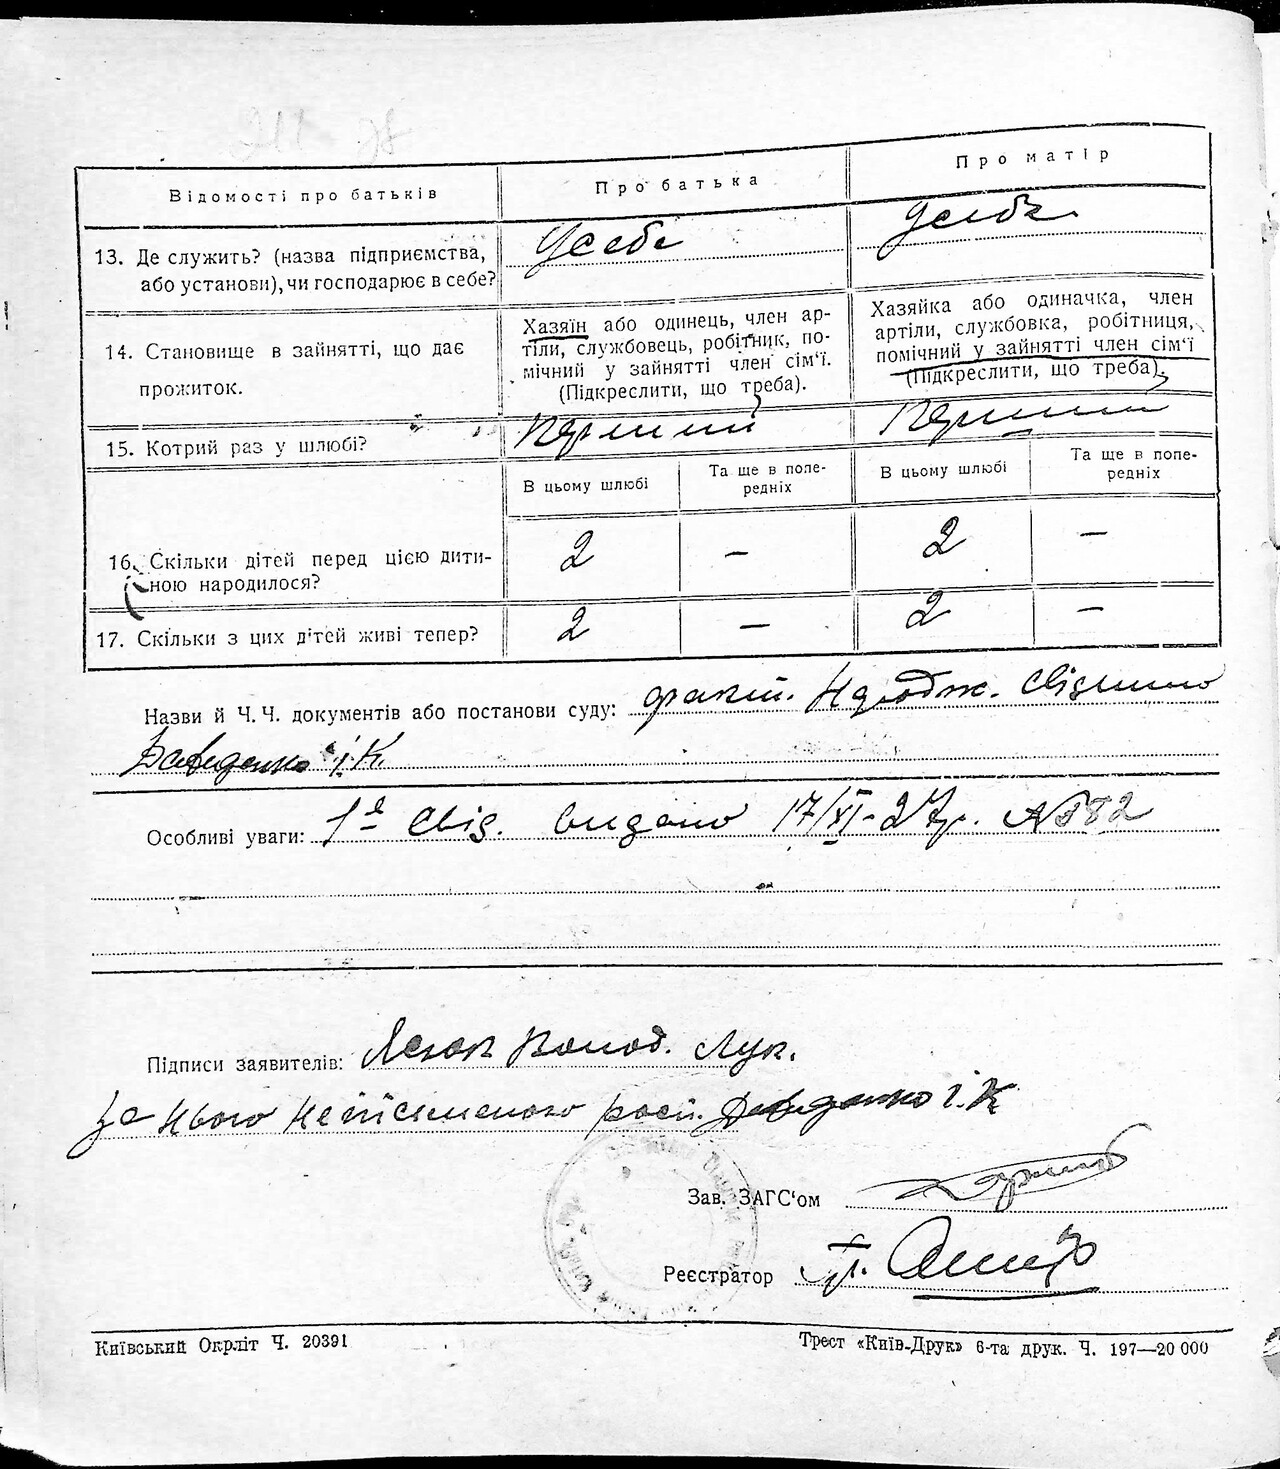 Відомості про батьків
Про батька
Про матір
13. Де служить? (назва підприємства,
або установи), чи господарює в себе?
У себе
У себе
14. Становище в зайнятті, що дає
прожиток.
Хазяїн або одинець, член ар-
тіли, службовець, робітник, по-
мічний у зайнятті член сім'ї.
(Підкреслити, що треба).
Хазяйка або одиначка, член
артіли, службовка, робітниця,
помічний у зайнятті член сім'ї
(Підкреслити, що треба).
15. Котрий раз у шлюбі?
Перший
Перший
В цьому шлюбі
Та ще в попе-
редніх
В цьому шлюбі
Та ще в попе-
редніх
16. Скільки дітей перед цією дити-
ною народилося?
2 — 2 —
17. Скільки з цих дітей живі тепер?
2 — 2 —
Назви й Ч. Ч. документів або постанови суду:
Особливі уваги: Свід. видано 17/XI-27р. №582
Підписи заявителів: Лук.
за нього неписьменого І. К.
Зав. ЗАГС'ом
Реєстратор
Київський Окрліт Ч. 20391
Трест «Київ-Друк» 6-та друк. Ч. 197—20 000